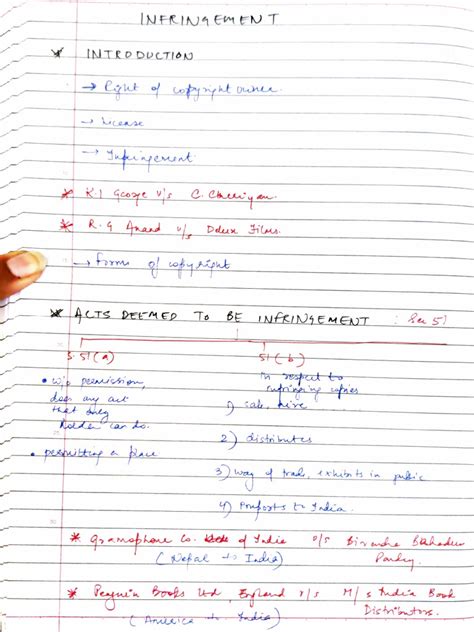 INFRINGEMENT
* INTRODUCTION
→ Right of copyright owner.
→ license
→ Infringement
* K.I George v/s C. Cheriyan
* R.G Anand v/s Delux Films.
→ Forms of copyright
* ACTS DEEMED TO BE INFRINGEMENT : Sec 51
S. 51(a) 51(b)
• w/o permission in respect to
does any act infringing copies
that only 1) sale, hire
holder can do. 2) distributes
• permitting a place
3) way of trade, exhibits in public
4) imports to India.
* Gramophone Co. of India v/s Birendra Bahadur
(Nepal → India) Pandey.
* Penguin Books Ltd, England v/s M/s India Book
(America → India) Distributors.